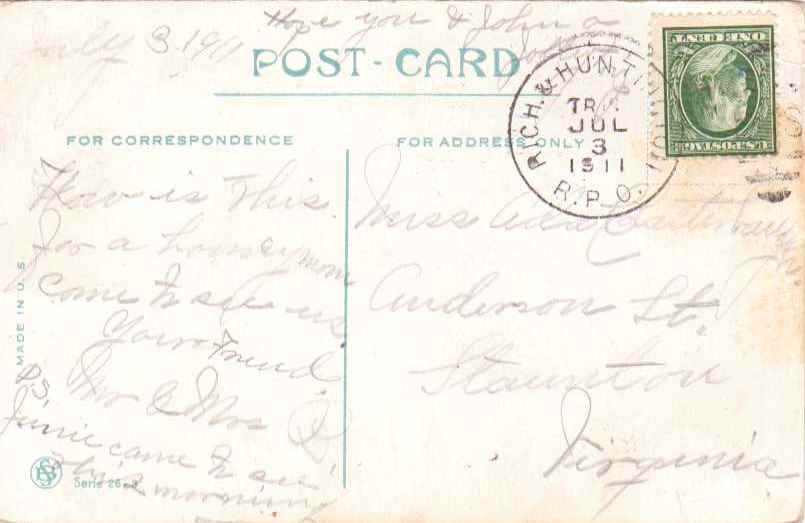 July 3 1911
Hope you & John a
POST-CARD
FOR CORRESPONDENCE
FOR ADDRESS ONLY
RICH. & HUNT
TR.
JUL
3
1911
R.P.O.
U.S. POSTAGE
ONE CENT
How is this
for a honeymoon
come to see us
Your Friend
Mr & Mrs
P.S.
Junie came to see
this morning
Miss
Anderson St.
Staunton
Virginia
MADE IN U.S
Serie 26